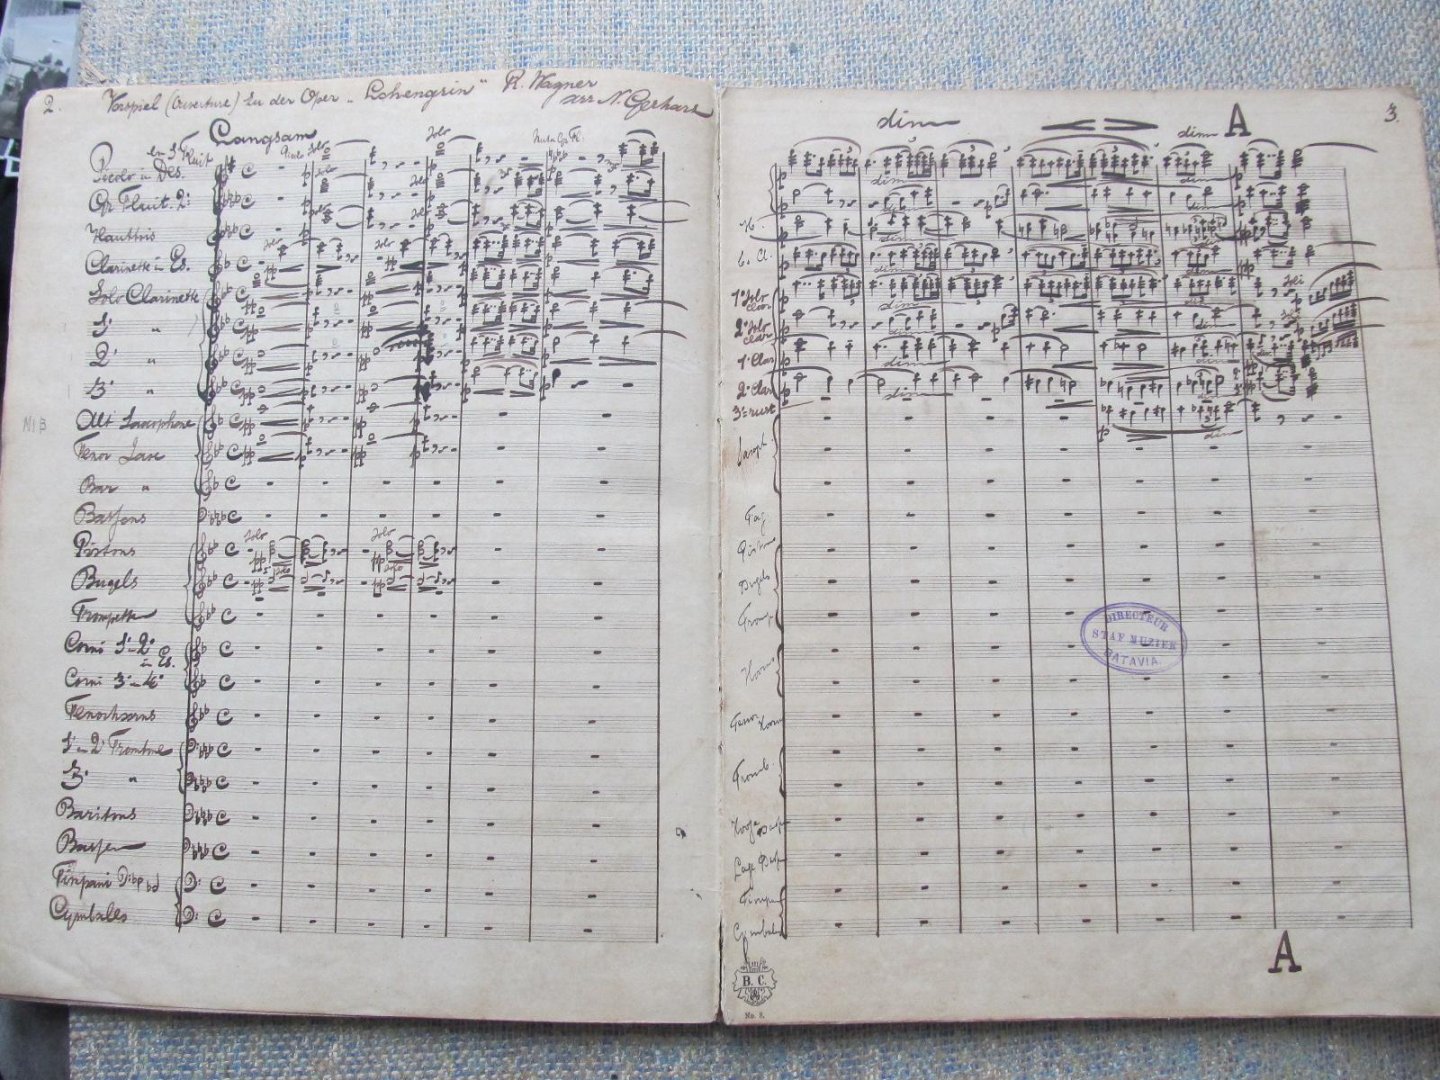 2.
Vorspiel (Ouverture) zu der Oper „Lohengrin" R. Wagner
arr N. Gerhars
Langsam
Solo
Picolo in Des.
Gr Fluit 2:
Hautbois
Clarinette in Es.
Solo Clarinette
1° "
2° "
3° "
Alt Saxophone
Tenor Saxe
Bar "
Bassons
Pistons
Bugels
Trompetten
Corni 1° en 2°
in Es.
Corni 3° en 4°
Tenorhoorns
1° en 2° Trombone
3° "
Baritons
Bassen
Timpani
Cymballes
Solo
Solo
3.
dim
dim A
H.
b. Cl.
1° Solo
clar.
2° Solo
clar.
1° Clar
2° Clar
3°
Saxoph
Fag
Pistons
Bugels
Tromp
Hoorns
Tenor Hoorns
Tromb.
Hooge Bassen
Lage Bassen
Timpani
Cymbales
dim
dim
dim
dim
dim
DIRECTEUR
STAF MUZIEK
BATAVIA.
A
B. C.
No. 8.